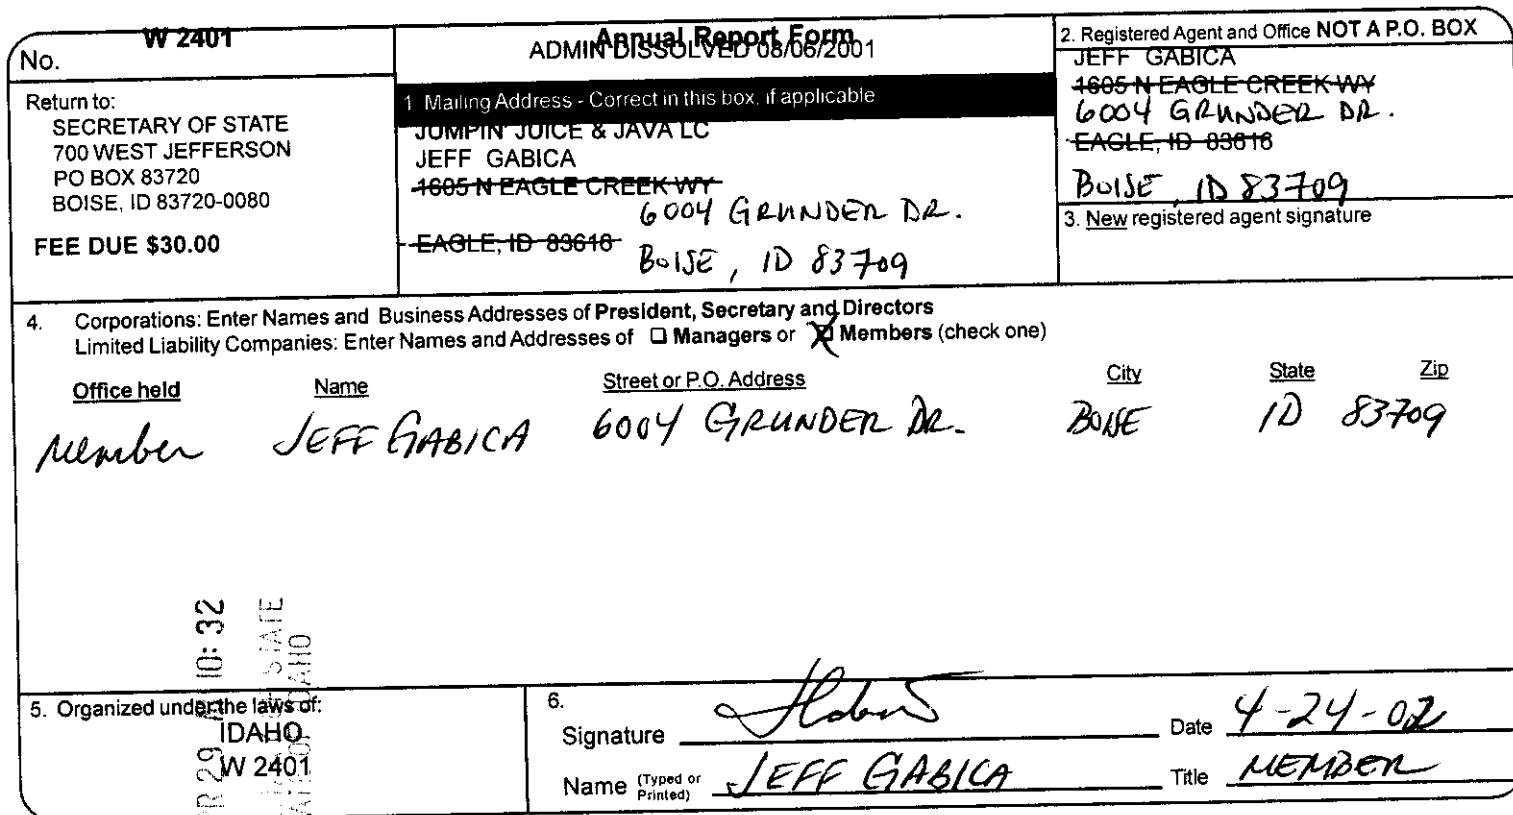 No. W 2401
Annual Report Form
ADMIN DISSOLVED 08/06/2001
Return to:
SECRETARY OF STATE
700 WEST JEFFERSON
PO BOX 83720
BOISE, ID 83720-0080
FEE DUE $30.00
1 Mailing Address - Correct in this box, if applicable
JUMPIN' JUICE & JAVA LC
JEFF GABICA
1605 N EAGLE CREEK WY
6004 GRUNDER DR.
EAGLE, ID 83616
BOISE, ID 83709
2. Registered Agent and Office NOT A P.O. BOX
JEFF GABICA
1605 N EAGLE CREEK WY
6004 GRUNDER DR.
EAGLE, ID 83616
BOISE, ID 83709
3. New registered agent signature
4. Corporations: Enter Names and Business Addresses of President, Secretary and Directors
Limited Liability Companies: Enter Names and Addresses of ☐ Managers or ☒ Members (check one)
Office held Name Street or P.O. Address City State Zip
Member JEFF GABICA 6004 GRUNDER DR. BOISE ID 83709
10:32
STATE
IDAHO
29
5. Organized under the laws of:
IDAHO
W 2401
6.
Signature Date 4-24-02
Name (Typed or Printed) JEFF GABICA Title MEMBER